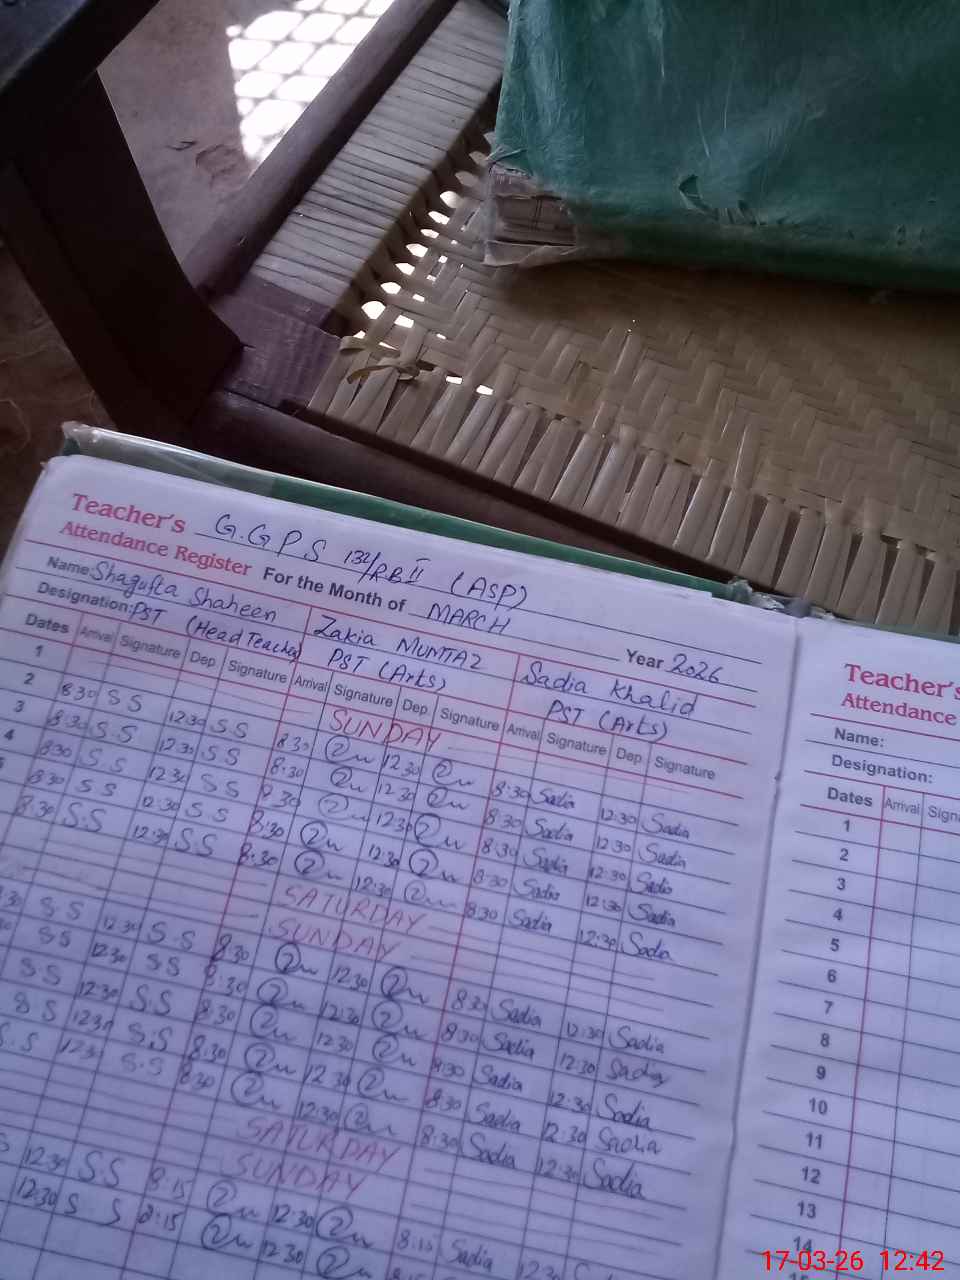 Teacher's G.G.P.S 132/RB II (ASP)
Attendance Register For the Month of MARCH Year 2026
Name: Shagufta Shaheen Zakia MUMTAZ Sadia Khalid
Designation: PST (Head Teacher) PST (Arts) PST (Arts)
Dates Arrival Signature Dep Signature Arrival Signature Dep. Signature Arrival Signature Dep Signature
1 SUNDAY
2 8:30 S S 12:30 S S 8:30 12:30 8:30 Sadia 12:30 Sadia
3 8:30 S.S 12:30 S S 8:30 12:30 8:30 Sadia 12:30 Sadia
4 8:30 S S 12:30 S S 8:30 12:30 8:30 Sadia 12:30 Sadia
8:30 S S 12:30 S S 8:30 12:30 8:30 Sadia 12:30 Sadia
8:30 S.S 12:30 S S 8:30 12:30 8:30 Sadia 12:30 Sadia
SATURDAY
SUNDAY
S S 12:30 S.S 8:30 12:30 8:30 Sadia 12:30 Sadia
S S 12:30 S S 8:30 12:30 8:30 Sadia 12:30 Sadia
S S 12:30 S.S 8:30 12:30 8:30 Sadia 12:30 Sadia
S S 12:30 S.S 8:30 12:30 8:30 Sadia 12:30 Sadia
S.S 12:30 S.S 8:30 12:30 8:30 Sadia 12:30 Sadia
SATURDAY
SUNDAY
12:30 S S 8:15 12:30 8:15 Sadia 12:30
12:30 S S 8:15 12:30
Teacher's
Attendance
Name:
Designation:
Dates Arrival
1
2
3
4
5
6
7
8
9
10
11
12
13
14
17-03-26 12:42